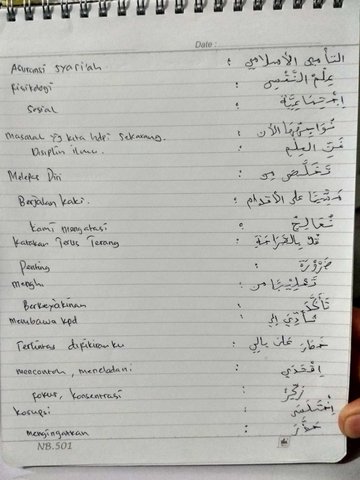 Date :
Asuransi syari'ah : التأمين الإسلامي
Fisikologi : عِلْمُ النَّفْسِ
Sosial : اِجْتِمَاعِيَّة
Masalah yg kita hdpi sekarang : نُوَاجِهُهَا الأن
Disiplin ilmu : فَنِّ العِلْمِ
Melepas Diri : تَخَلَّصَ مِن
Berjalan kaki : مَشْيًا على الأقدام
Kami mengatasi : نُعَالِجُ
Katakan Terus Terang : قُلْ بِالصَّرَاحَةِ
Penting : ضَرُوْرَة
mengh
Berkeyakinan : تَأَكَّدَ
membawa kpd : تُأَدِّيْ إلى
Terlintas dipikiranku : خَطَرَ عَلَى بَالِي
mencontoh, meneladani : اِقْتَدَى
fokus, konsentrasi : رَكَّزَ
Korupsi : اخْتَلَسَ
mengingatkan : حَذَّرَ
NB.501